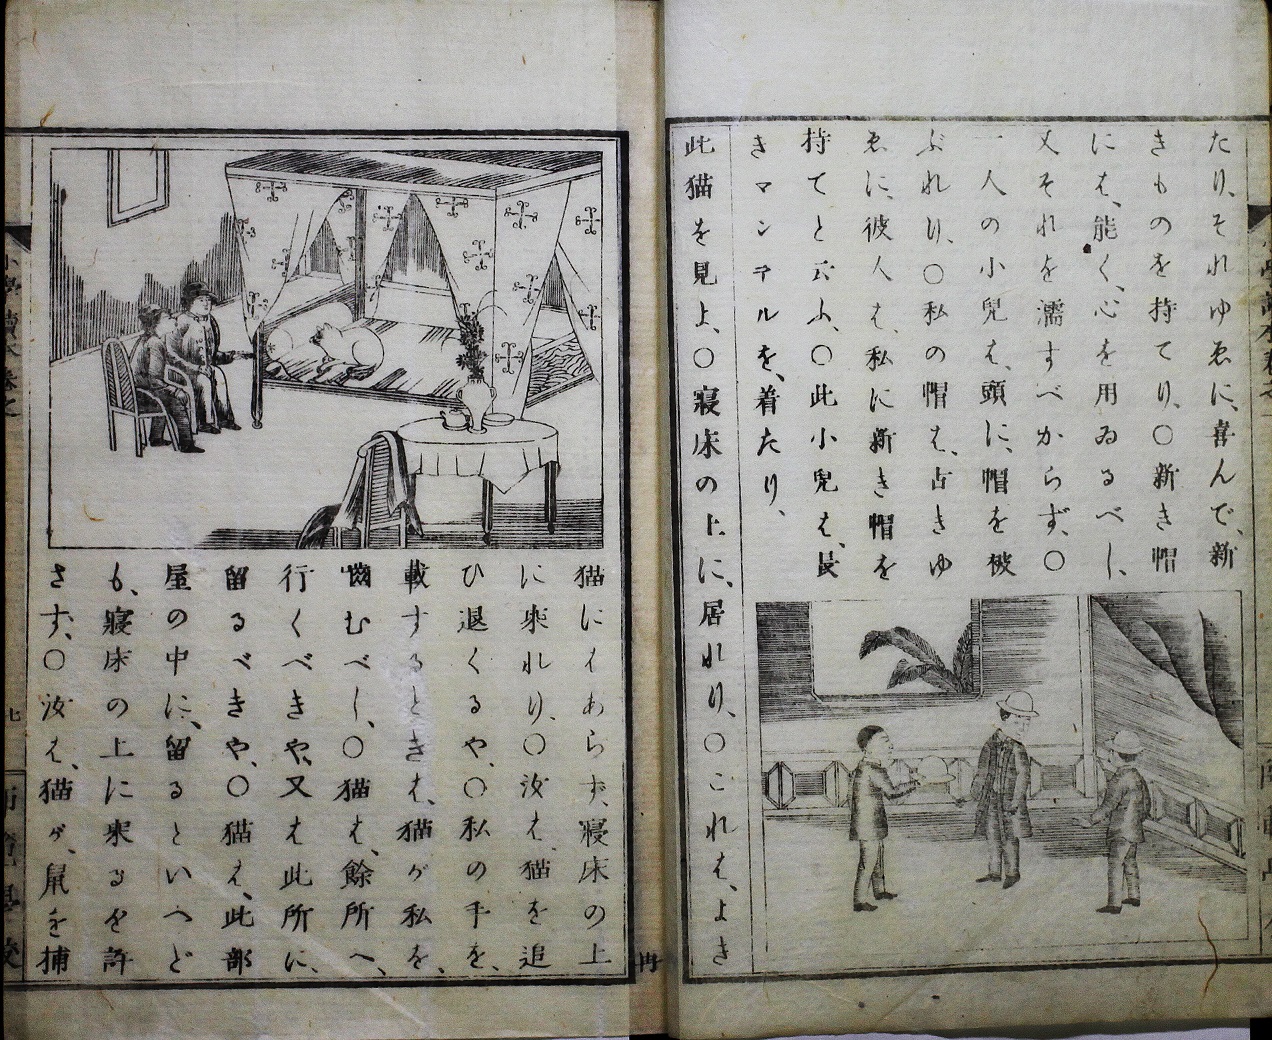 たり、それゆゑに、喜んで、新
きものを持てり、○新き帽
にハ、能く、心を用ゐるべし、
又それを濡すべからず、○
一人の小兒ハ、頭に、帽を被
ぶれり、○私の帽ハ、古きゆ
ゑに、彼人ハ、私に新き帽を
持てと云ふ、○此小兒ハ、長
きマンテルを、着たり、
此猫を見よ、○寢床の上に、居れり、○これハ、よき
猫にハあらず、寢床の上
に來れり、○汝ハ、猫を追
ひ退くるや、○私の手を、
載するときハ、猫が私を、
嚙むべし、○猫ハ、餘所へ、
行くべきや、又ハ此所に、
留るべきや、○猫ハ、此部
屋の中に、留るといへど
も、寢床の上に來るを許
さず、○汝ハ、猫が、鼠を捕